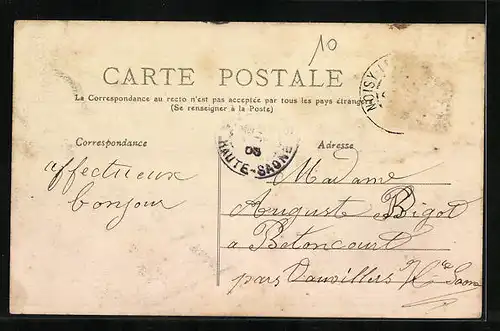 10
CARTE POSTALE
La Correspondance au recto n'est pas acceptée par tous les pays étrangers
(Se renseigner à la Poste)
NOISY
Correspondance
05
HAUTE-SAONE
Adresse
affectueux
bonjour
Madame
Auguste Bigot
à Betoncourt
par Vauvillers Hte Saone